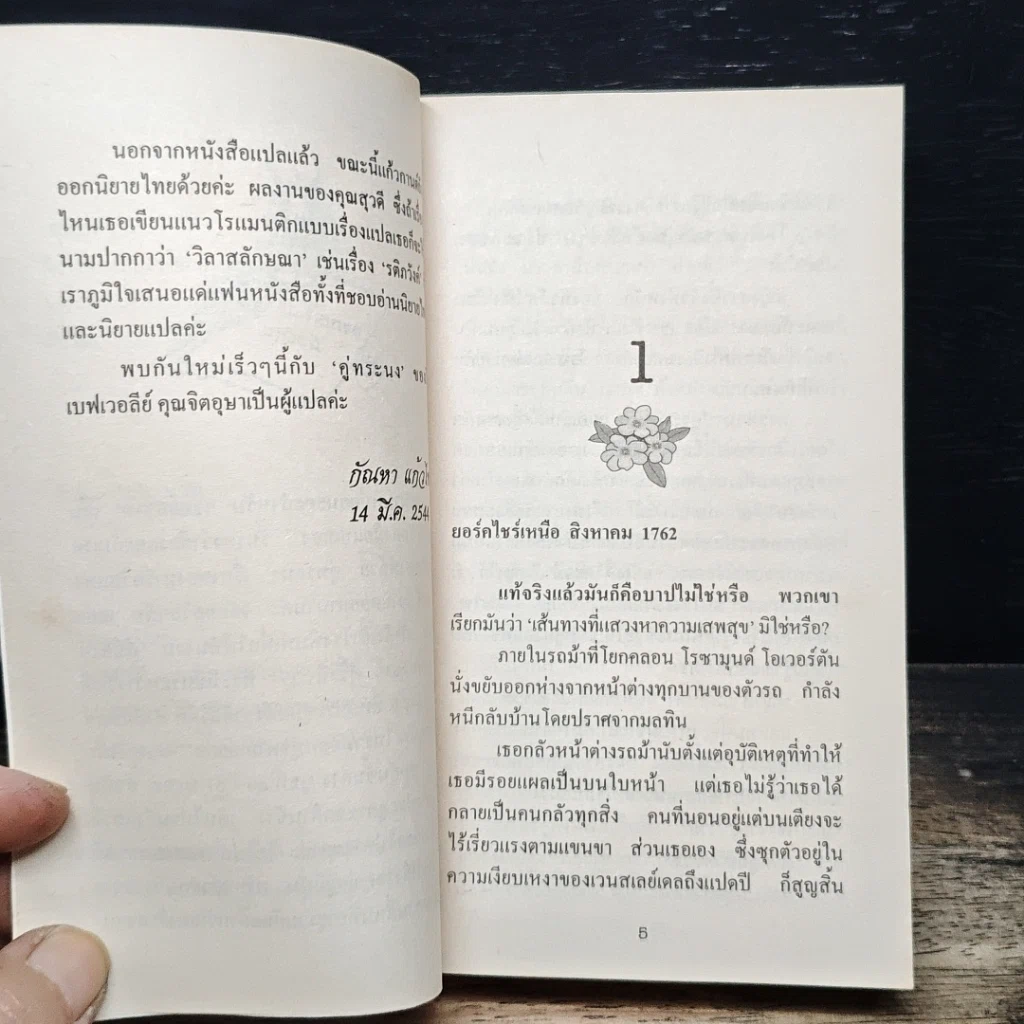 นอกจากหนังสือแปลแล้ว ขณะนี้แก้วกานต์
ออกนิยายไทยด้วยค่ะ ผลงานของคุณสุวดี ซึ่งถ้า
ไหนเธอเขียนแนวโรแมนติกแบบเรื่องแปลเธอก็จะ
นามปากกาว่า 'วิลาสลักษณา' เช่นเรื่อง 'รติภวังค์'
เราภูมิใจเสนอแด่แฟนหนังสือทั้งที่ชอบอ่านนิยาย
และนิยายแปลค่ะ
พบกันใหม่เร็วๆนี้กับ 'คู่ทระนง' ของ
เบฟเวอลีย์ คุณจิตอุษาเป็นผู้แปลค่ะ
กัณหา
14 มี.ค. 2544
1
ยอร์คไชร์เหนือ สิงหาคม 1762
แท้จริงแล้วมันก็คือบาปไม่ใช่หรือ พวกเขา
เรียกมันว่า 'เส้นทางที่แสวงหาความเสพสุข' มิใช่หรือ?
ภายในรถม้าที่โยกคลอน โรซามุนด์ โอเวอร์ตัน
นั่งขยับออกห่างจากหน้าต่างทุกบานของตัวรถ กำลัง
หนีกลับบ้านโดยปราศจากมลทิน
เธอกลัวหน้าต่างรถม้านับตั้งแต่อุบัติเหตุที่ทำให้
เธอมีรอยแผลเป็นบนใบหน้า แต่เธอไม่รู้ว่าเธอได้
กลายเป็นคนกลัวทุกสิ่ง คนที่นอนอยู่แต่บนเตียงจะ
ไร้เรี่ยวแรงตามแขนขา ส่วนเธอเอง ซึ่งซุกตัวอยู่ใน
ความเงียบเหงาของเวนสเลย์เดลถึงแปดปี ก็สูญสิ้น
5